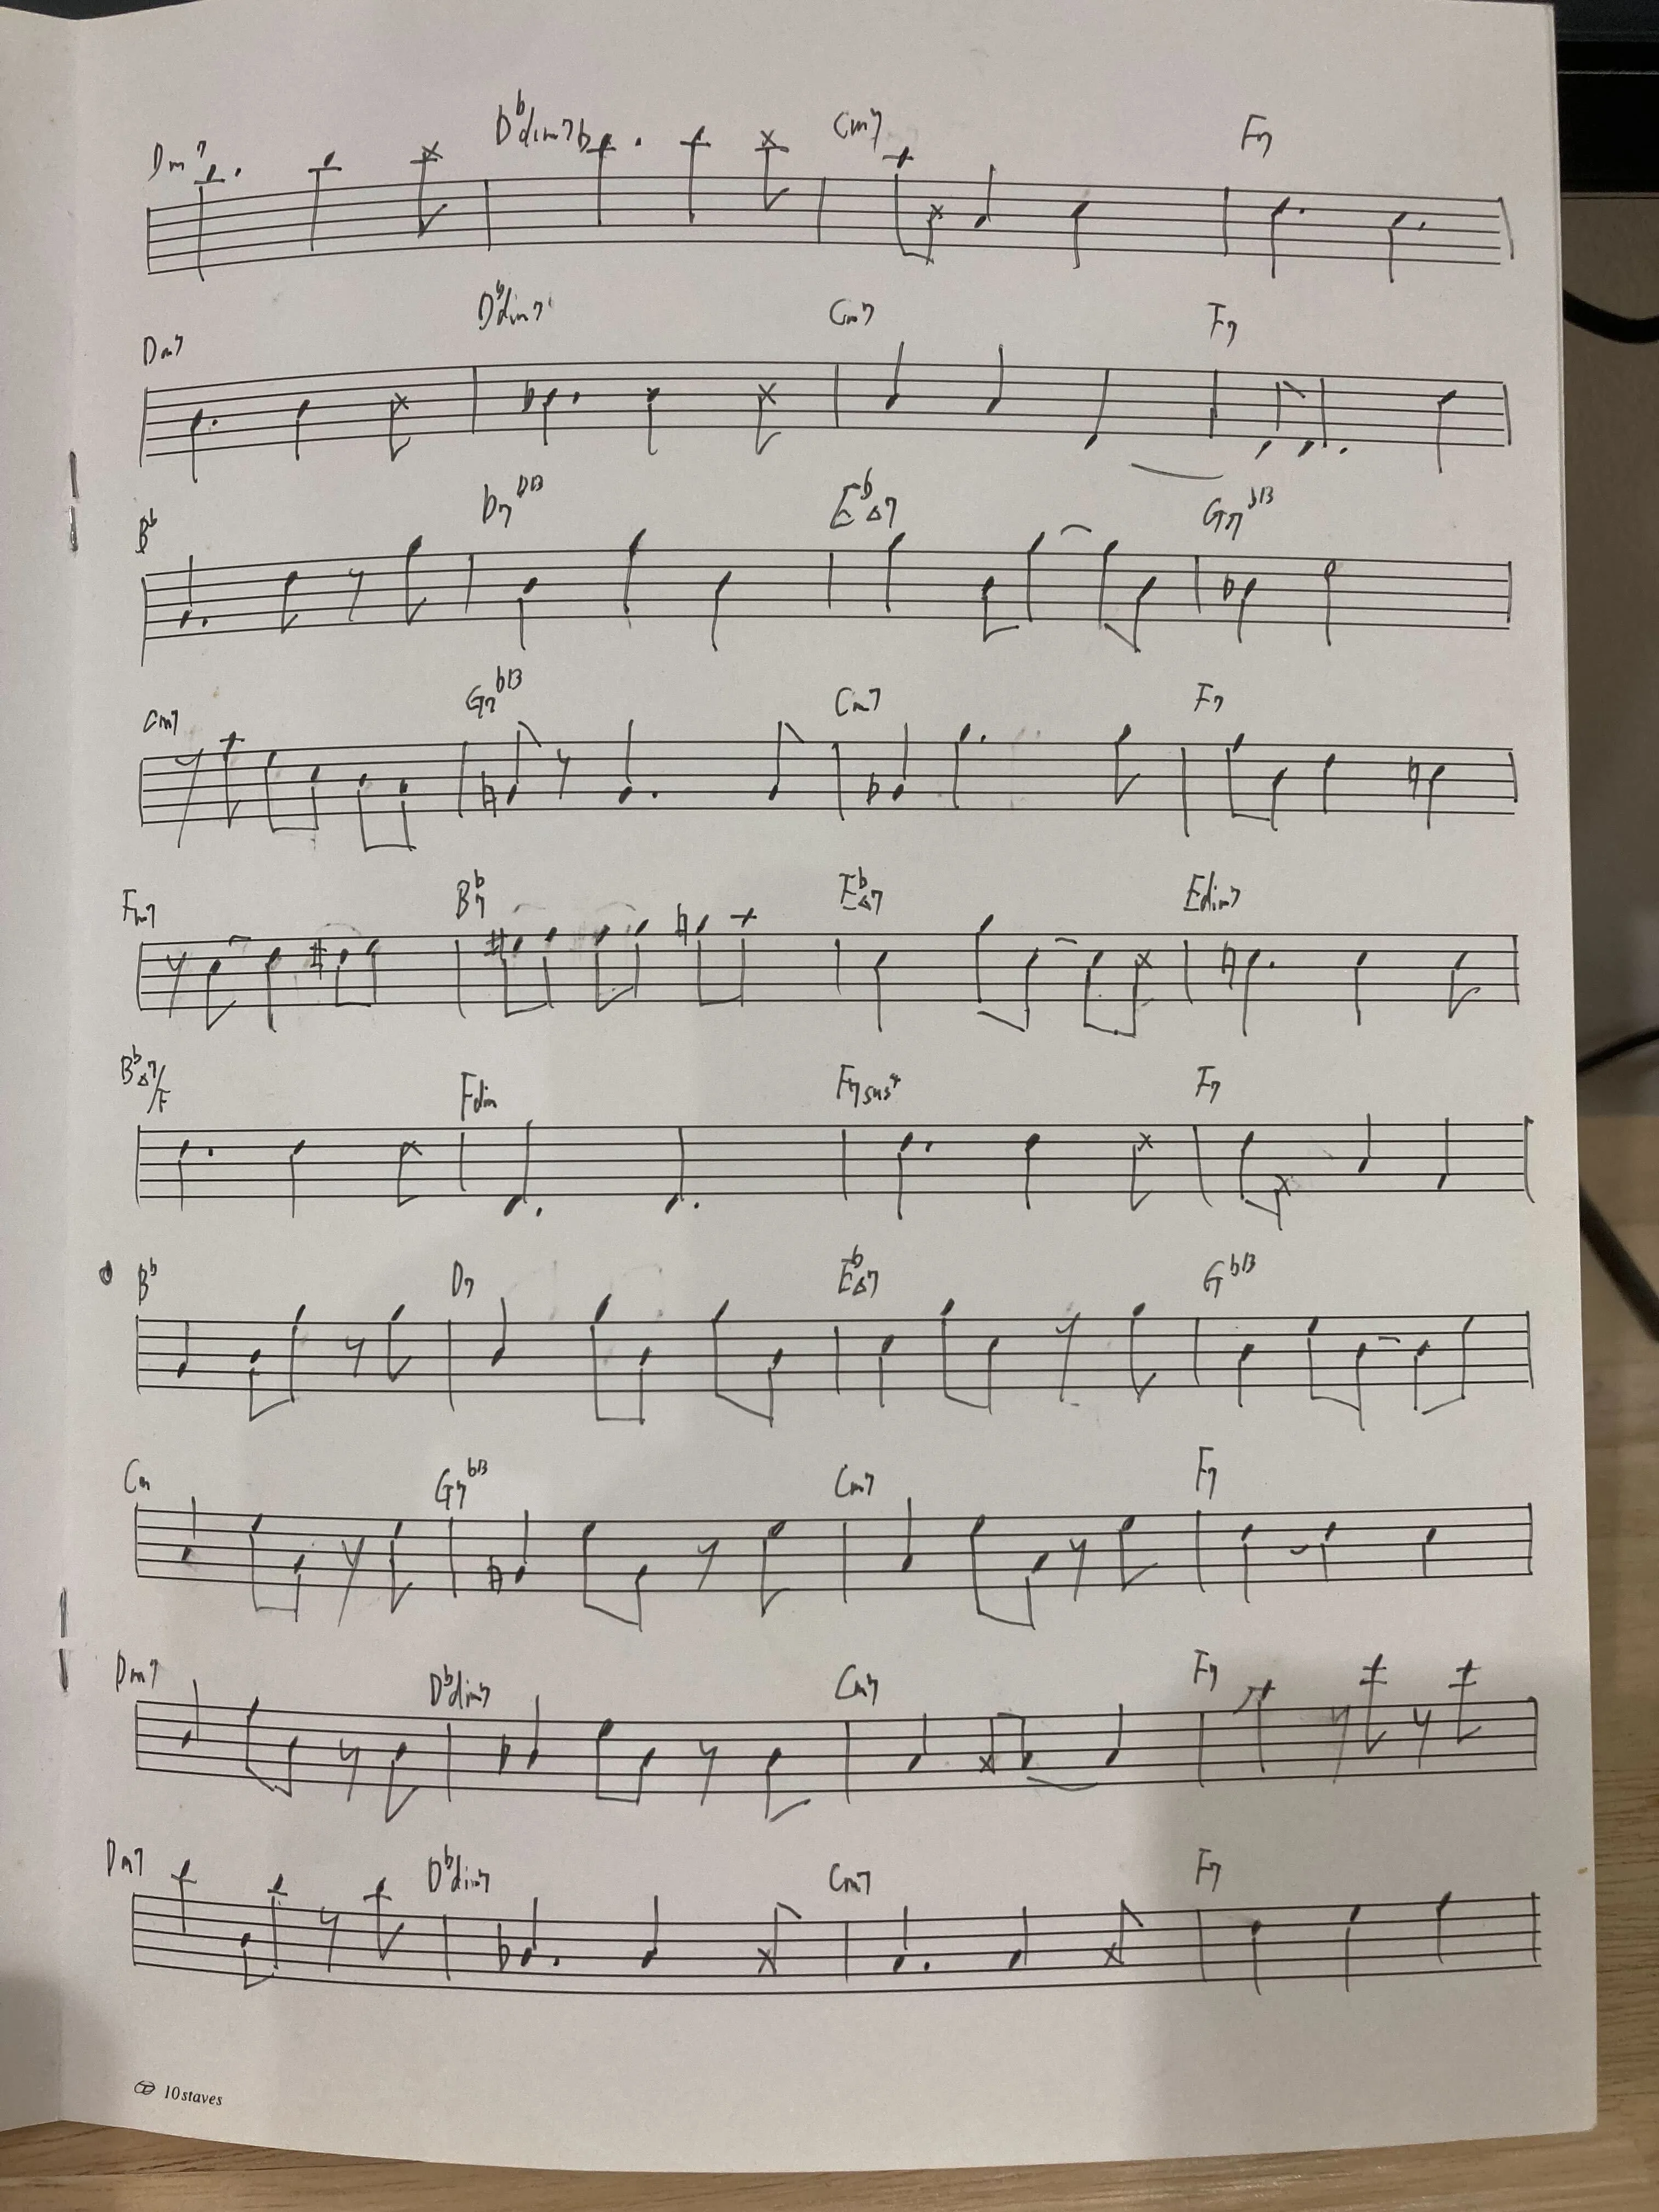 Dm7 Dbdim7 Cm7 F7
Dm7 Dbdim7 Cm7 F7
Bb D7b13 EbΔ7 G7b13
Cm7 G7b13 Cm7 F7
Fm7 Bb7 EbΔ7 Edim7
BbΔ7/F Fdim F7sus4 F7
Bb D7 EbΔ7 Gb13
Cm G7b13 Cm7 F7
Dm7 Dbdim7 Cm7 F7
Dm7 Dbdim7 Cm7 F7
10staves